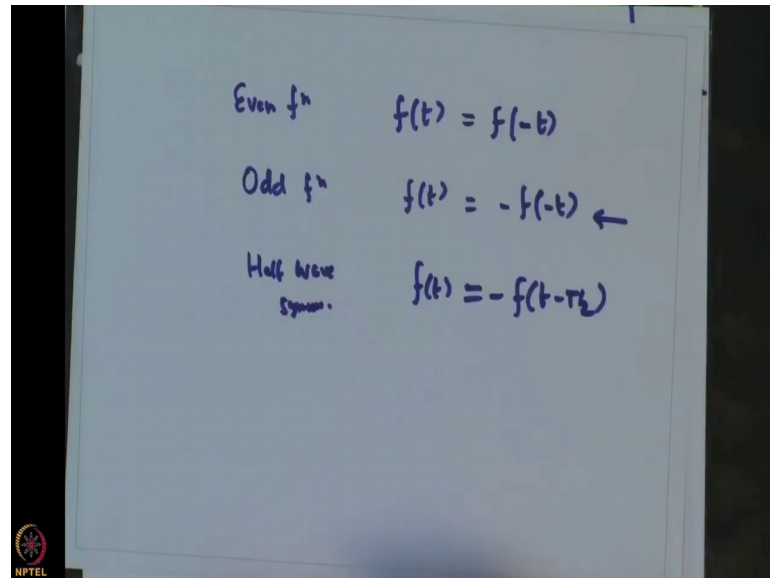 Even fⁿ f(t) = f(-t)
Odd fⁿ f(t) = -f(-t) ←
Half wave f(t) = -f(t-T/2)
symm.
NPTEL